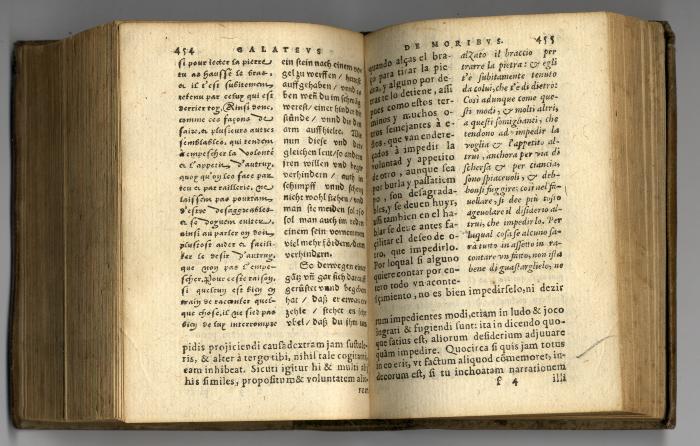 454 GALATEVS
si pour iecter la pierre
tu as haussé le bras,
et il t'est subitement
retenu par celuy qui est
derrier toy. Ainsi donc,
comme ces façons de
faire, et plusieurs autres
semblables, qui tendent
à empescher la volonté
et l'appetit d'autruy,
quoy qu'on les face par
jeu et par raillerie, ne
laissent pas pourtant
d'estre desaggreables
et se doyuent euiter,
ainsi au parler on doit
plustost aider et facili-
ter le desir d'autruy,
que non pas l'empes-
cher. Pour ceste raison,
si quelcun est bien en
train de raconter quel-
que chose, il ne sied pas
bien de luy interrompre
ein stein nach einem vo-
gel zu werffen / 
auffgehaben / vnnd
ben wenn du im schwang
werest / einer hinder dir
stünde / vnnd dir den
arm auffhielte. Wie
nun diese vnd der-
gleichen
tren willen vnd
verhindern / auch im
schimpff vnnd schertz
nicht wohl stehen / vnd
man sie meiden sol: also
sol man auch im reden
einem sein vornemmen
viel mehr fördern / dann
verhindern.
So derwegen einer
gantz vnd gar sich darzu
gerüstet vnd begeben
hat / daß er etwas er-
zehle / stehet es
vbel / daß du ihm
pidis projiciendi causa dextram jam sustule-
ris, & alter à tergo tibi, nihil tale cogitanti,
eam inhibeat. Sicuti igitur hi & multi alij
his similes, propositum & voluntatem alio-
rum
DE MORIBVS. 455
quando alças el bra-
ço para tirar la pie
dra, y alguno por de-
tras te lo detiene, assi
pues como estos ter-
minos y muchos o-
tros semejantes à e-
stos, que van endere-
çados à impedir la
voluntad y appetito
de otro, aunque sea
por burla y passatiem
po, son desagrada-
bles, y se deuen huyr,
assi tambien en el ha-
blar se deue antes fa-
çilitar el desseo de o-
tro, que impedirlo.
Por loqual si alguno
quiere contar por en-
tero todo vn aconte-
sçimiento, no es bien impedirselo, ni dezir
alzato il braccio per
trarre la pietra: & egli
t'è subitamente tenuto
da colui, che t'è di dietro:
Così adunque como que-
sti modi, & molti altri,
a questi somiglianti, che
tendono ad impedir la
voglia & l'appetito al-
trui, anchora per via di
scherzo & per ciancia,
sono spiaceuoli, & deb-
bonsi fuggire: così nel fa-
uellare, si dee più tosto
ageuolare il disiderio al-
trui, che impedirlo. Per
laqual cosa se alcuno sa-
rà tutto in assetto in ra-
contare vn fatto, non istà
bene di guastarglielo, ne
rum impedientes modi, etiam in ludo & joco
ingrati & fugiendi sunt: ita in dicendo quo-
que satius est, aliorum desiderium adjuuare
quàm impedire. Quocirca si quis jam totus
in eo erit, vt factum aliquod cõmemoret, in-
decorum est, si tu inchoatam narrationem
f 4 illi